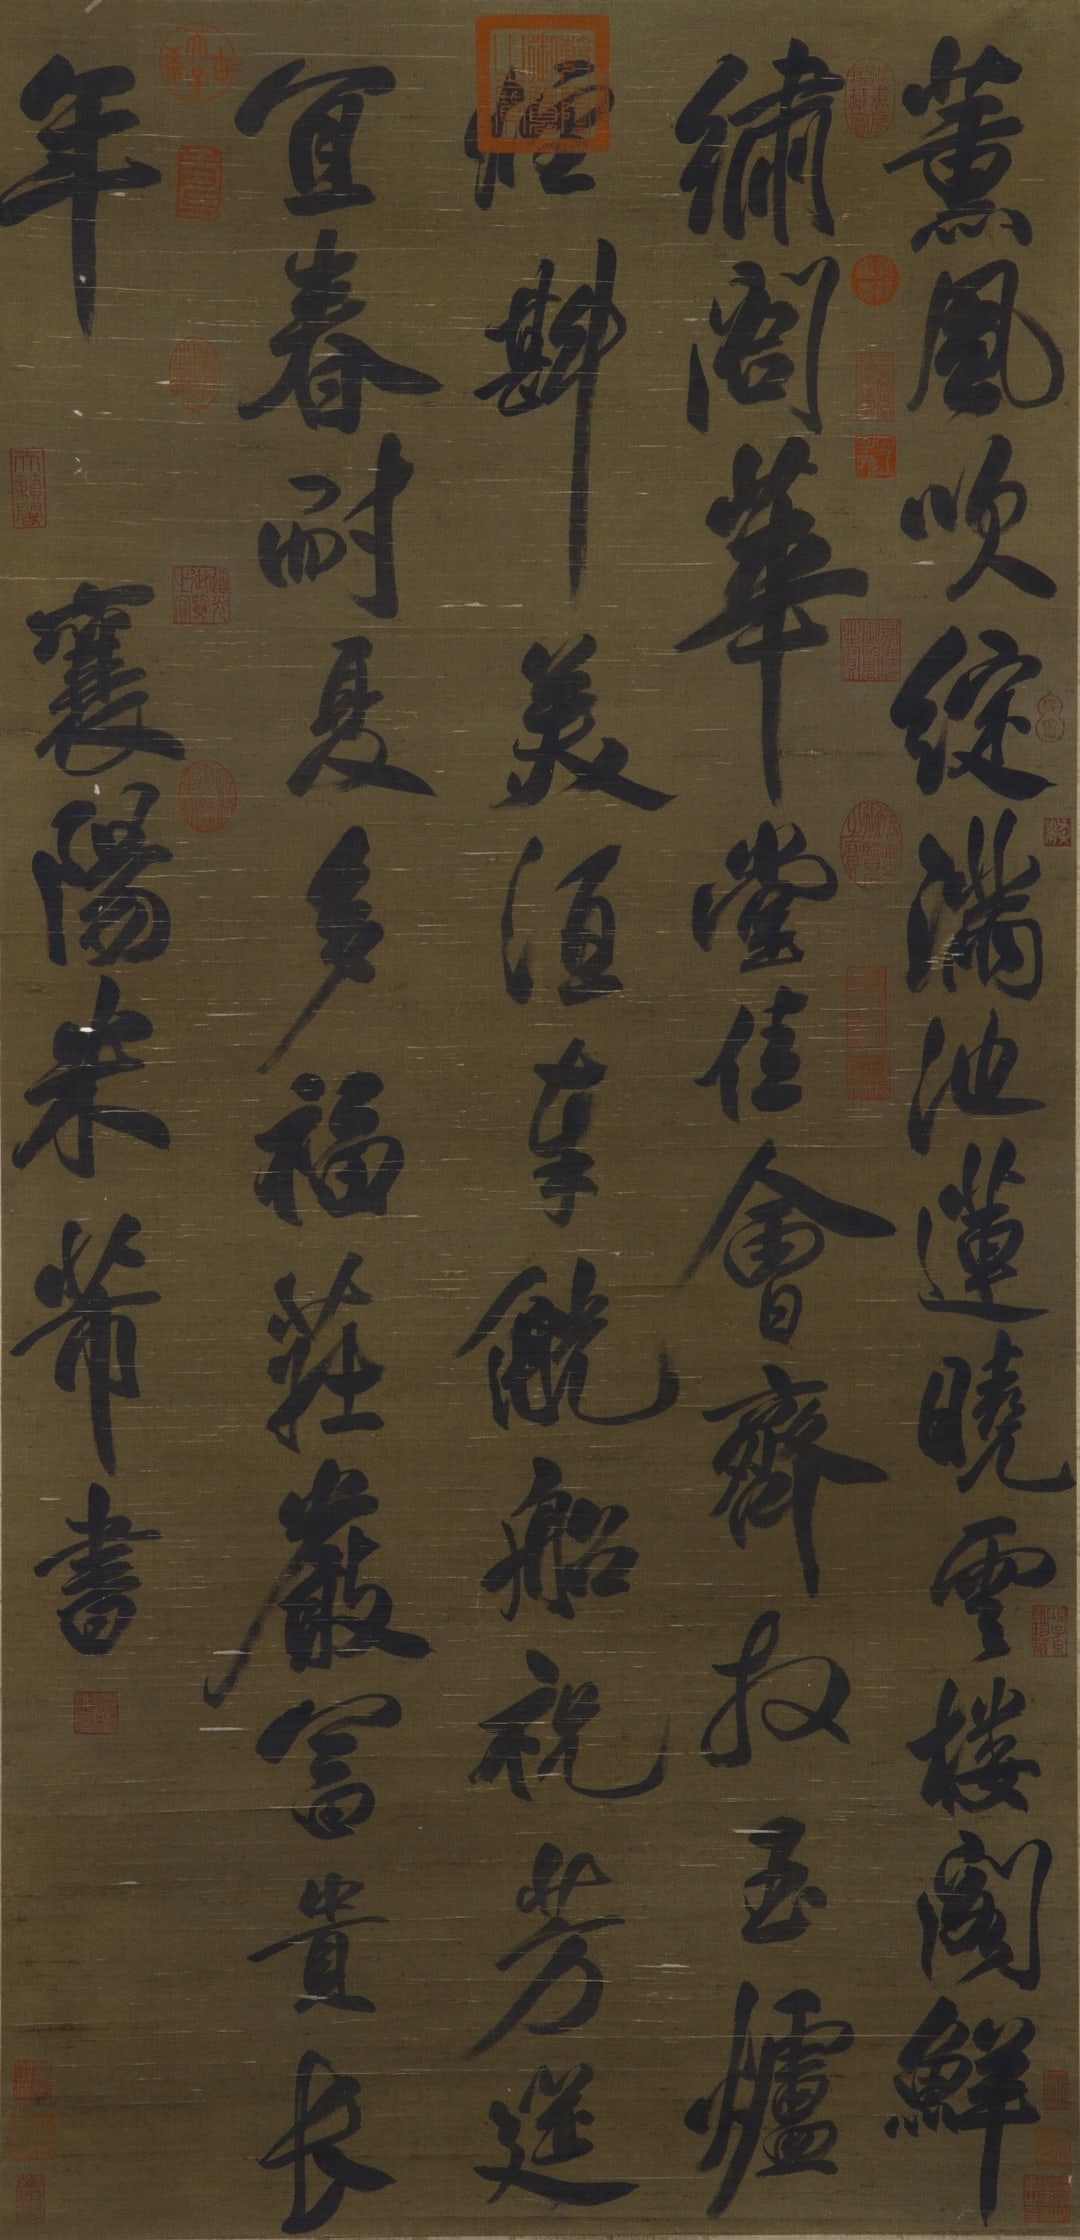 薰風吹綻滿池蓮曉雲樓閣鮮
繡閤華堂佳會齊玉爐
煙斟美酒奉觥船祝芳筵
宜春耐夏多福莊嚴富貴長
年
襄陽米芾書